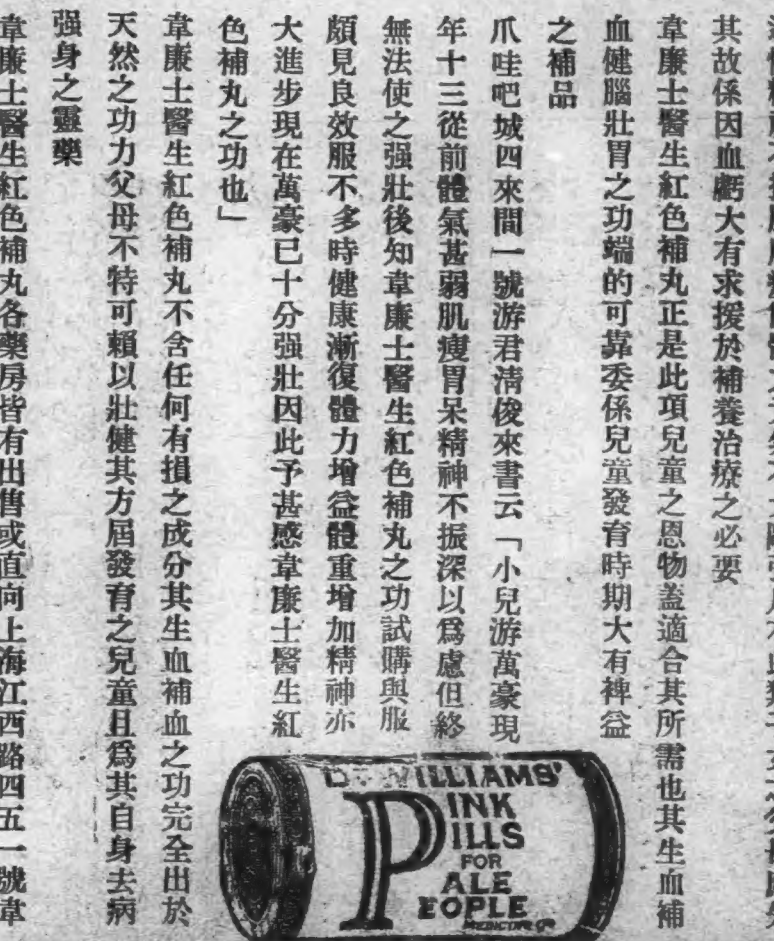 其故係因血虧大有求援於補養治療之必要
韋廉士醫生紅色補丸正是此項兒童之恩物蓋適合其所需也其生血補
血健腦壯胃之功端的可靠委係兒童發育時期大有裨益
之補品
爪哇吧城四來間一號游君清俊來書云「小兒游萬豪現
年十三從前體氣甚弱肌瘦胃呆精神不振深以爲慮但終
無法使之强壯後知韋廉士醫生紅色補丸之功試購與服
頗見良效服不多時健康漸復體力增益體重增加精神亦
大進步現在萬豪已十分强壯因此予甚感韋廉士醫生紅
色補丸之功也」
韋廉士醫生紅色補丸不含任何有損之成分其生血補血之功完全出於
天然之功力父母不特可賴以壯健其方屆發育之兒童且爲其自身去病
强身之靈藥
韋廉士醫生紅色補丸各藥房皆有出售或直向上海江西路四五一號韋
DR. WILLIAMS'
PINK
PILLS
FOR
PALE
PEOPLE